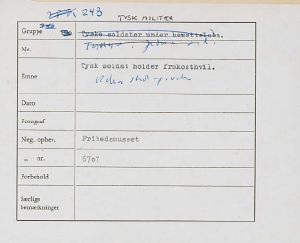 24B
TYSK MILITÆR
Gruppe Tyske soldater under besættelsen.
Nr.
Emne Tysk soldat holder frokosthvil.
Dato
Fotograf
Neg. opbev. Frihedsmuseet
„ nr. 6707
Forbehold
Særlige
bemærkninger